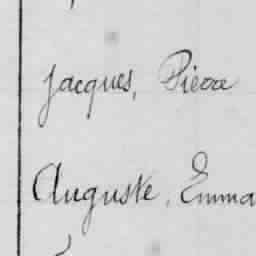 Jacques, Pierre
Auguste, Emma